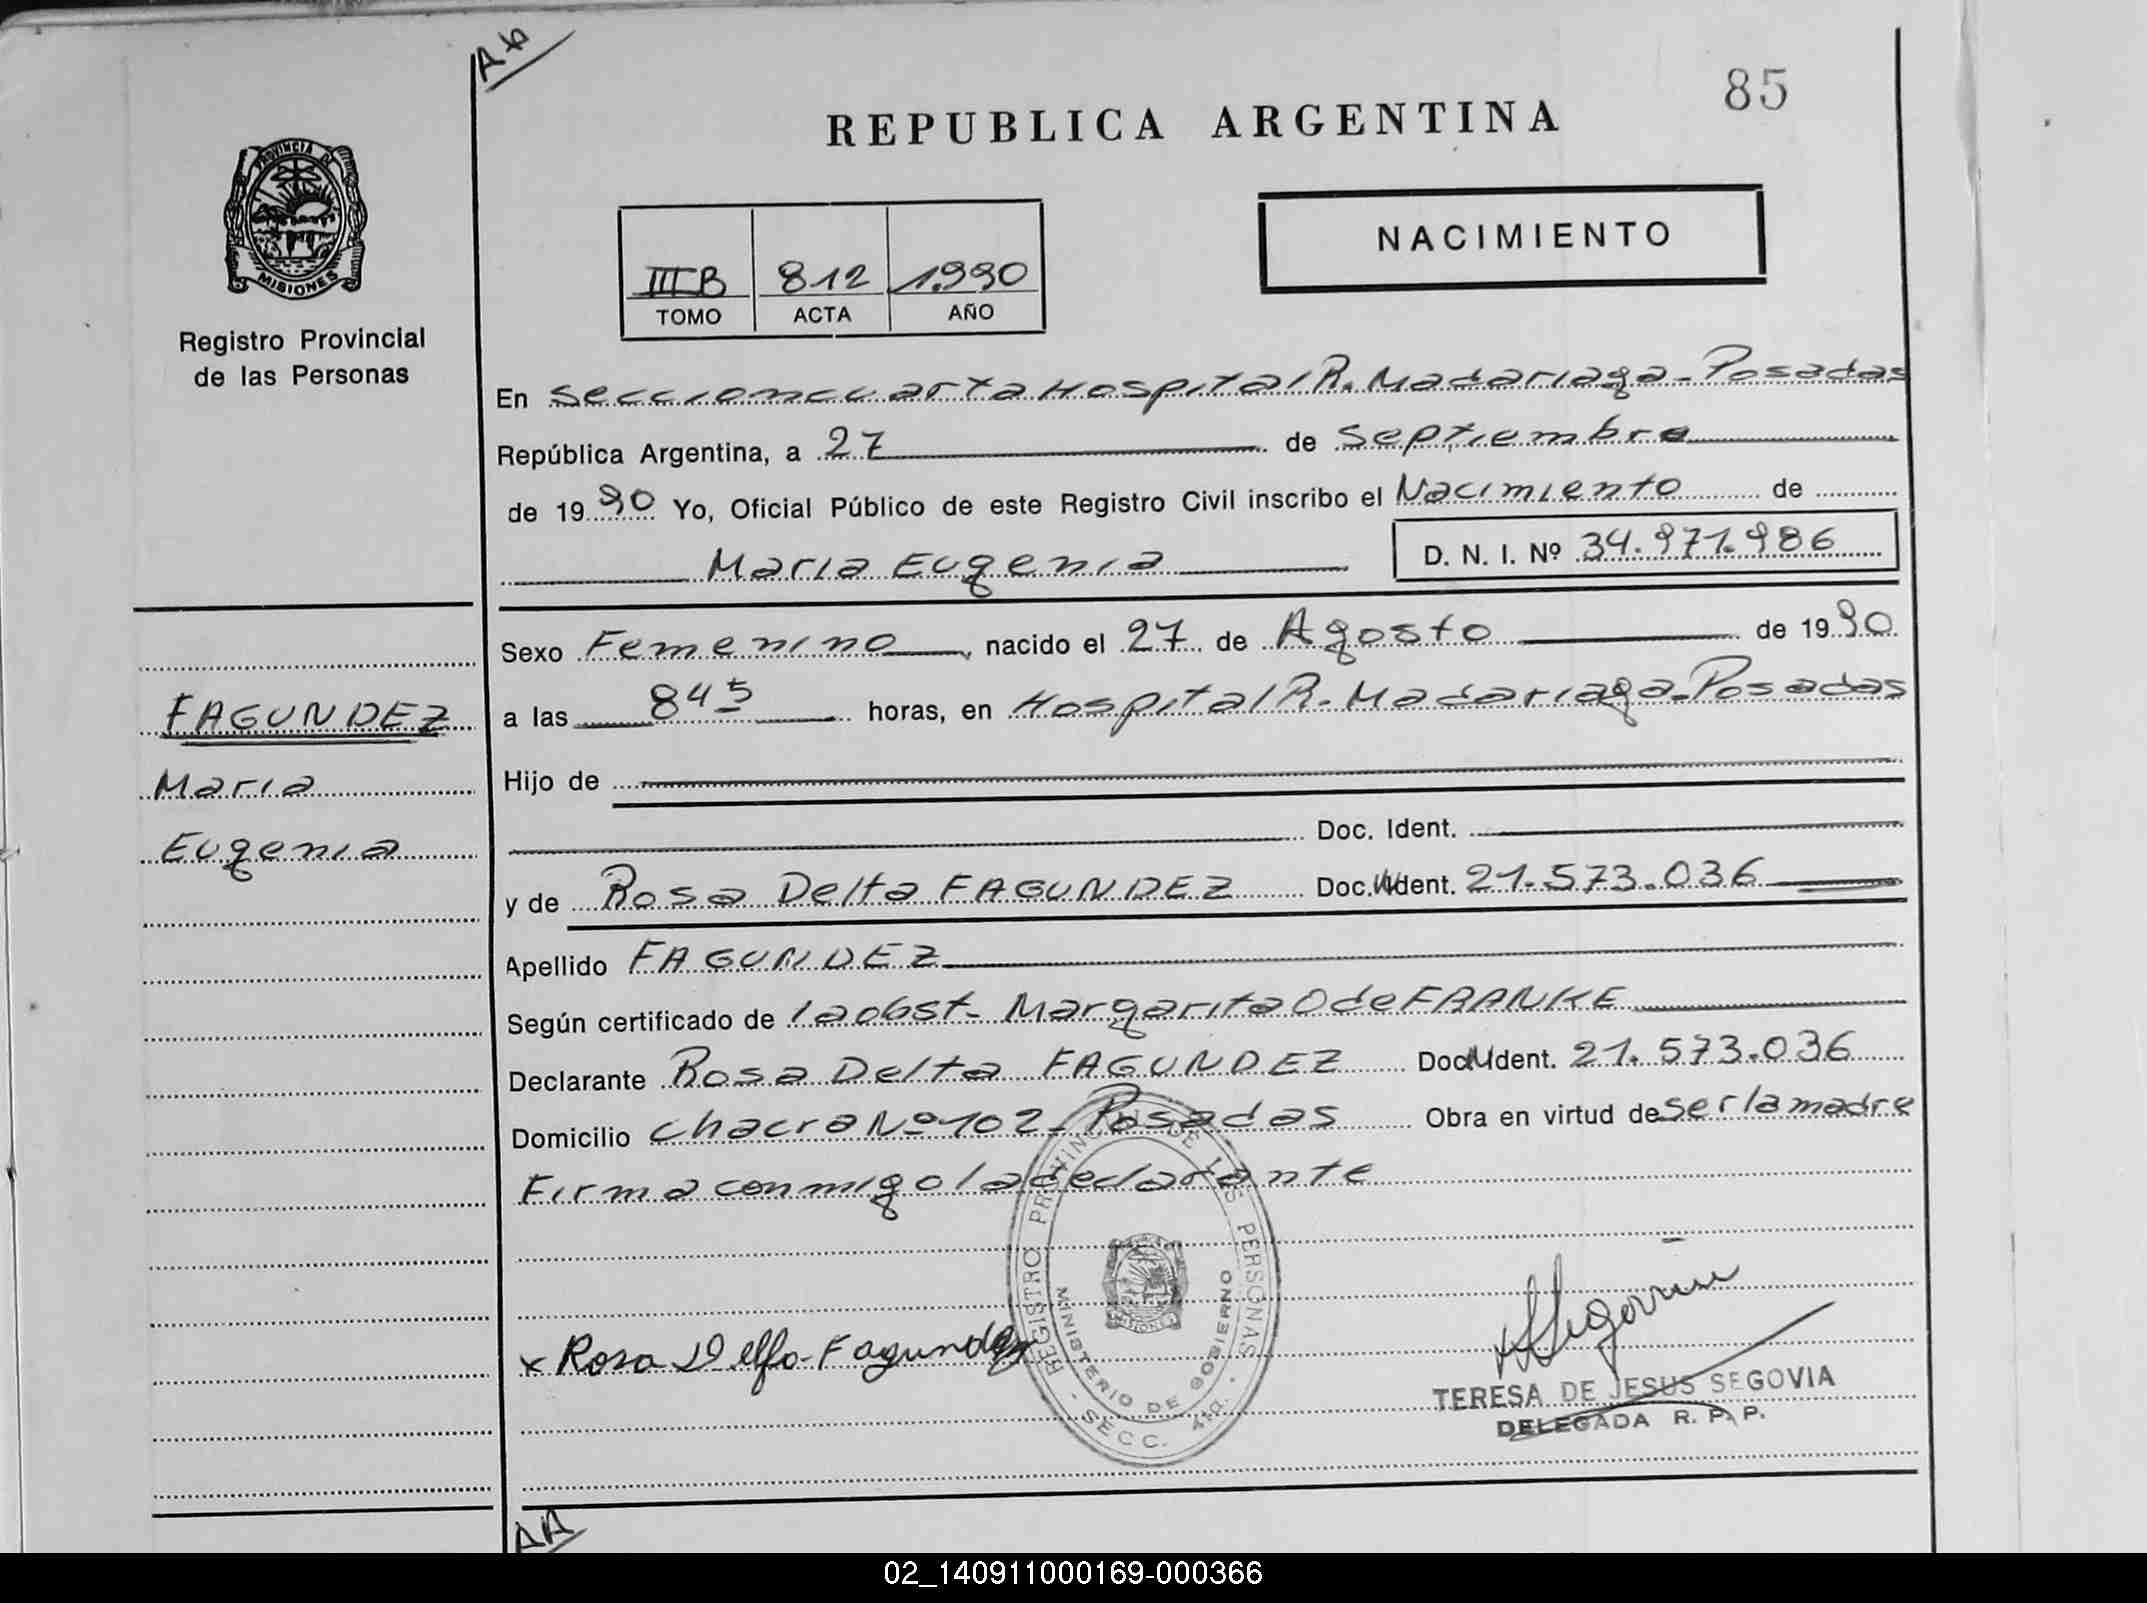 A b
85
REPUBLICA ARGENTINA
PROVINCIA DE
MISIONES
Registro Provincial
de las Personas
III B 812 1.990
TOMO ACTA AÑO
NACIMIENTO
En Seccion cuarta Hospital R. Madariaga - Posadas
República Argentina, a 27 de Septiembre
de 1990 Yo, Oficial Público de este Registro Civil inscribo el Nacimiento de
Maria Eugenia D. N. I. Nº 34.971.986
Sexo Femenino, nacido el 27 de Agosto de 1990
FAGUNDEZ
Maria
Eugenia
a las 8 45 horas, en Hospital R. Madariaga - Posadas
Hijo de
Doc. Ident.
y de Rosa Delfa FAGUNDEZ Doc. Ident. 21.573.036
Apellido FAGUNDEZ
Según certificado de la obst. Margarita O de FRANKE
Declarante Rosa Delfa FAGUNDEZ Doc. Ident. 21.573.036
Domicilio chacra Nº 102 - Posadas Obra en virtud de ser la madre
Firma conmigo la declarante
REGISTRO PROVINCIAL DE LAS PERSONAS
MINISTERIO DE GOBIERNO
SECC. 4ta.
x Rosa Delfa Fagundez
TERESA DE JESUS SEGOVIA
DELEGADA R. P. P.
AA
02_140911000169-000366